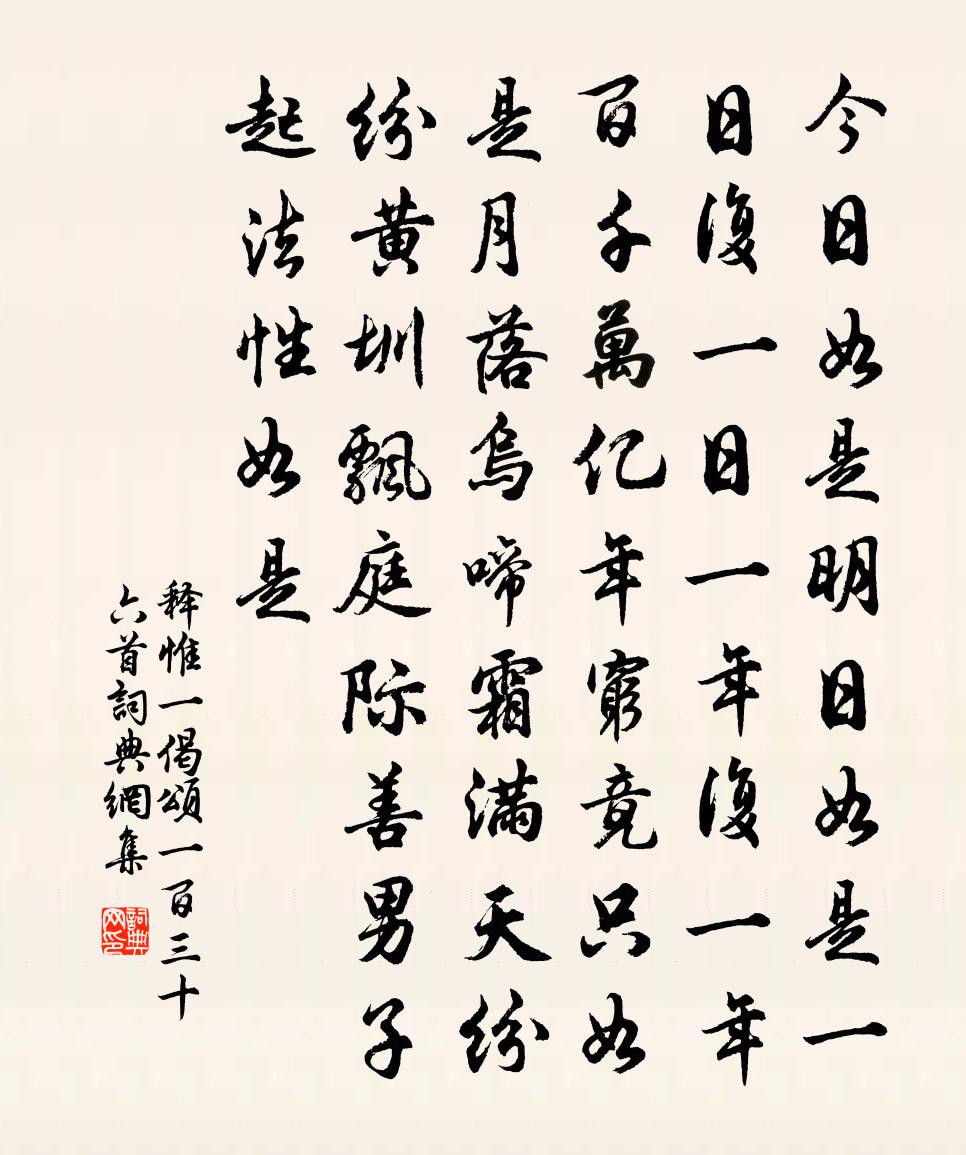 今日如是明日如是一
日復一日一年復一年
百千萬亿年窮竟只如
是月落烏啼霜滿天纷
纷黄圳飘庭际善男子
起法性如是
释惟一偈頌一百三十
六首詞典網集
詞典网印